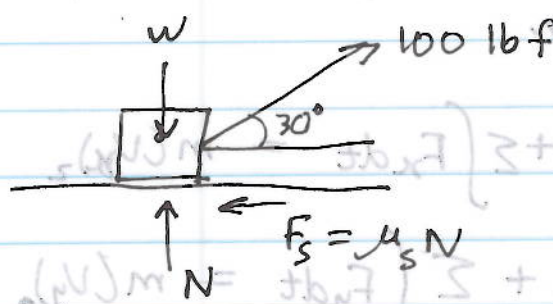 W
100 lbf
30°
F_s = μ_s N
N